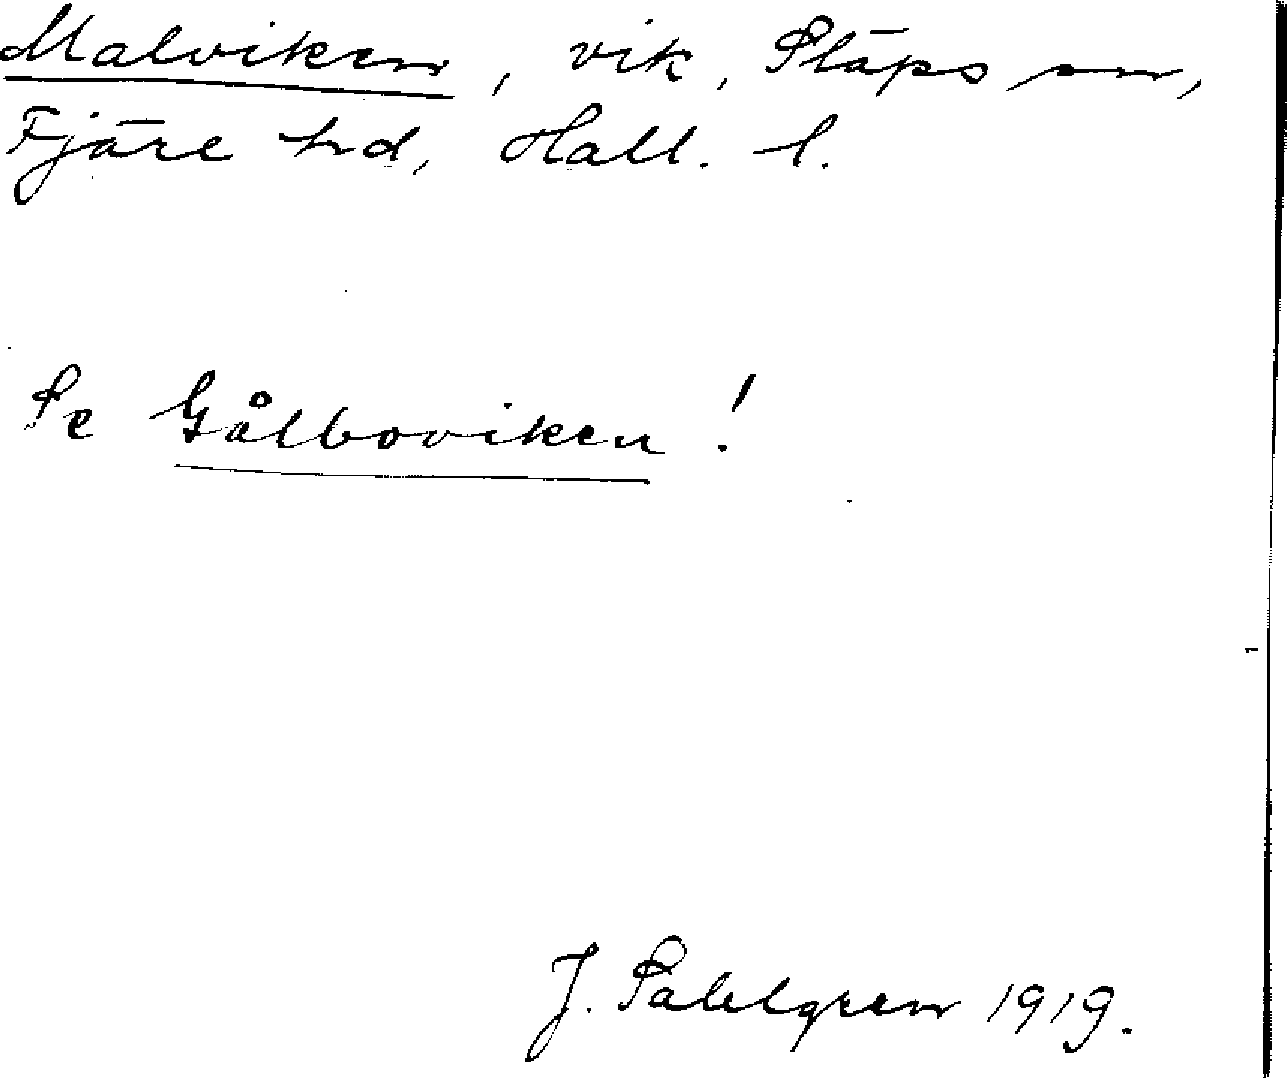 Malviken, vik, Släps sn,
Fjäre hd, Hall. l.
Se Gålboviken!
J. Sahlgren 1919.